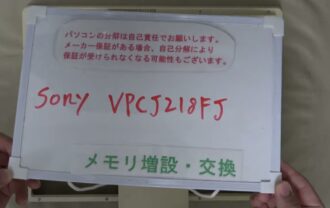 パソコンの分解は自己責任でお願いします。
メーカー保証がある場合、自己分解により
保証が受けられなくなる可能性もございます。
SONY VPCJ218FJ
メモリ増設・交換